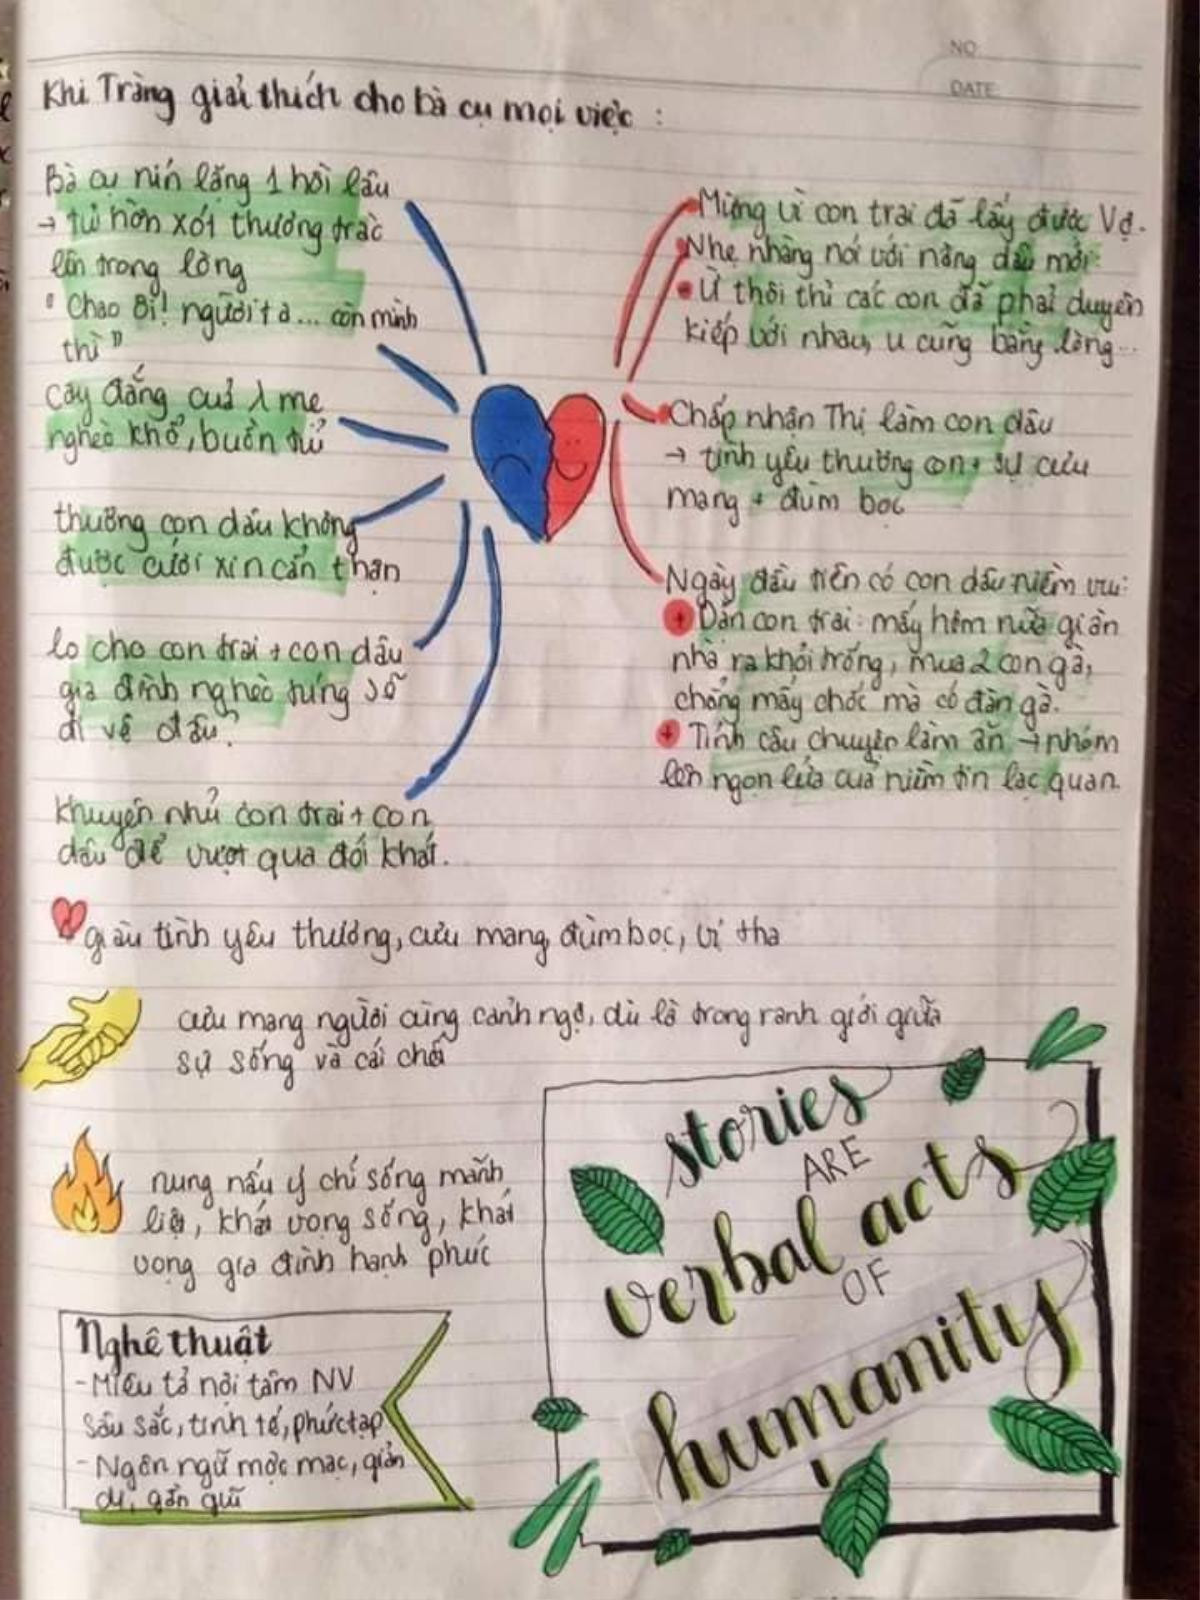 NO.
DATE
Khi Tràng giải thích cho bà cụ mọi việc :
Bà cụ nín lặng 1 hồi lâu
→ tủi hờn xót thương trào
lên trong lòng
" Chao ôi! người ta... còn mình
thì "
cay đắng của 1 mẹ
nghèo khổ, buồn tủi
thương con dâu không
được cưới xin cẩn thận
lo cho con trai + con dâu
gia đình nghèo túng sẽ
đi về đâu?
khuyên nhủ con trai + con
dâu để vượt qua đói khát.
Mừng vì con trai đã lấy được vợ.
Nhẹ nhàng nói với nàng dâu mới:
Ừ thôi thì các con đã phải duyên
kiếp với nhau, u cũng bằng lòng...
Chấp nhận Thị làm con dâu
→ tình yêu thương con + sự cưu
mang + đùm bọc
Ngày đầu tiên có con dâu niềm vui:
+ Dặn con trai: mấy hôm nữa giàn
nhà ra khỏi trống, mua 2 con gà,
chẳng mấy chốc mà có đàn gà.
+ Tính câu chuyện làm ăn → nhóm
lên ngọn lửa của niềm tin lạc quan.
giàu tình yêu thương, cưu mang, đùm bọc, vị tha
cưu mang người cùng cảnh ngộ, dù là trong ranh giới giữa
sự sống và cái chết
nung nấu ý chí sống mãnh
liệt, khát vọng sống, khát
vọng gia đình hạnh phúc
Nghệ thuật
- Miêu tả nội tâm NV
sâu sắc, tinh tế, phức tạp
- Ngôn ngữ mộc mạc, giản
dị, gần gũi
stories
ARE
verbal acts
OF
humanity